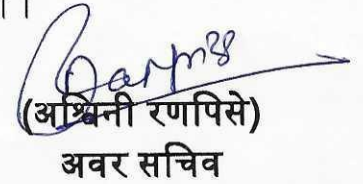 (अश्विनी रणपिसे)
अवर सचिव